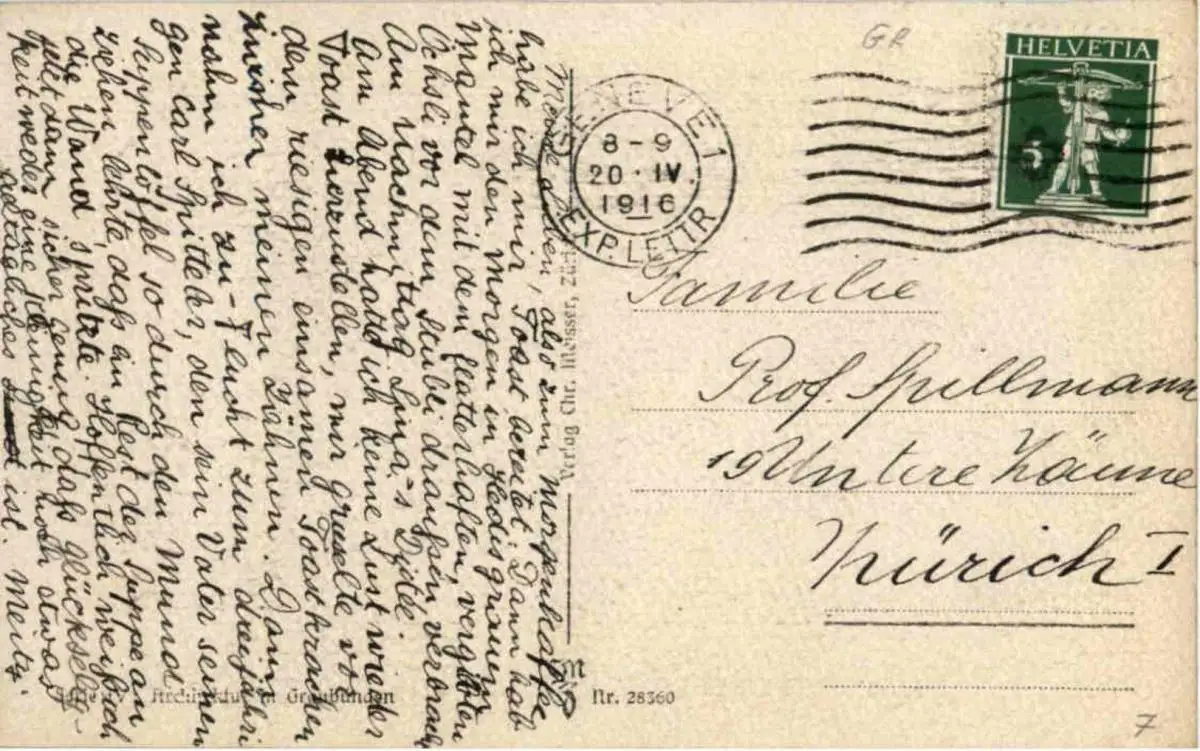 GR
HELVETIA
5
GENÈVE 1
8-9
20·IV.
1916
EXP. LETTR
Familie
Prof. Spillmann
19 Untere Zäune
Zürich I
Meine Lieben, also zum Morgenkaffee
habe ich mir, Toast bereitet. Dann hab
ich mir den Morgen in Hedis grauem
Mantel mit dem flatterhaften, vergilbten
Öchsli vor dem Stubli draußen verbracht
Am Nachmittag Lina's Visite.
Am Abend hatte ich keine Lust wieder
Toast herzustellen, mir gruselte vor
dem riesigen einsamen Toastkrachen
zwischen meinen Zähnen. Dann
nahm ich Zu-Flucht zum dreijähri
gen Carl Spitteler, den sein Vater seinen
Suppenlöffel so durch den Mund
ziehen lehrte, dass ein Rest der Suppe an
die Wand spritzte. Hoffentlich weiß ich
jetzt dann sicher genug, daß Glückselig-
keit weder eine Kleinigkeit noch etwas
alltägliches ist. Meity.
Verlag Chr. Meisser, Zür
in Graubünden
Nr. 28360
7